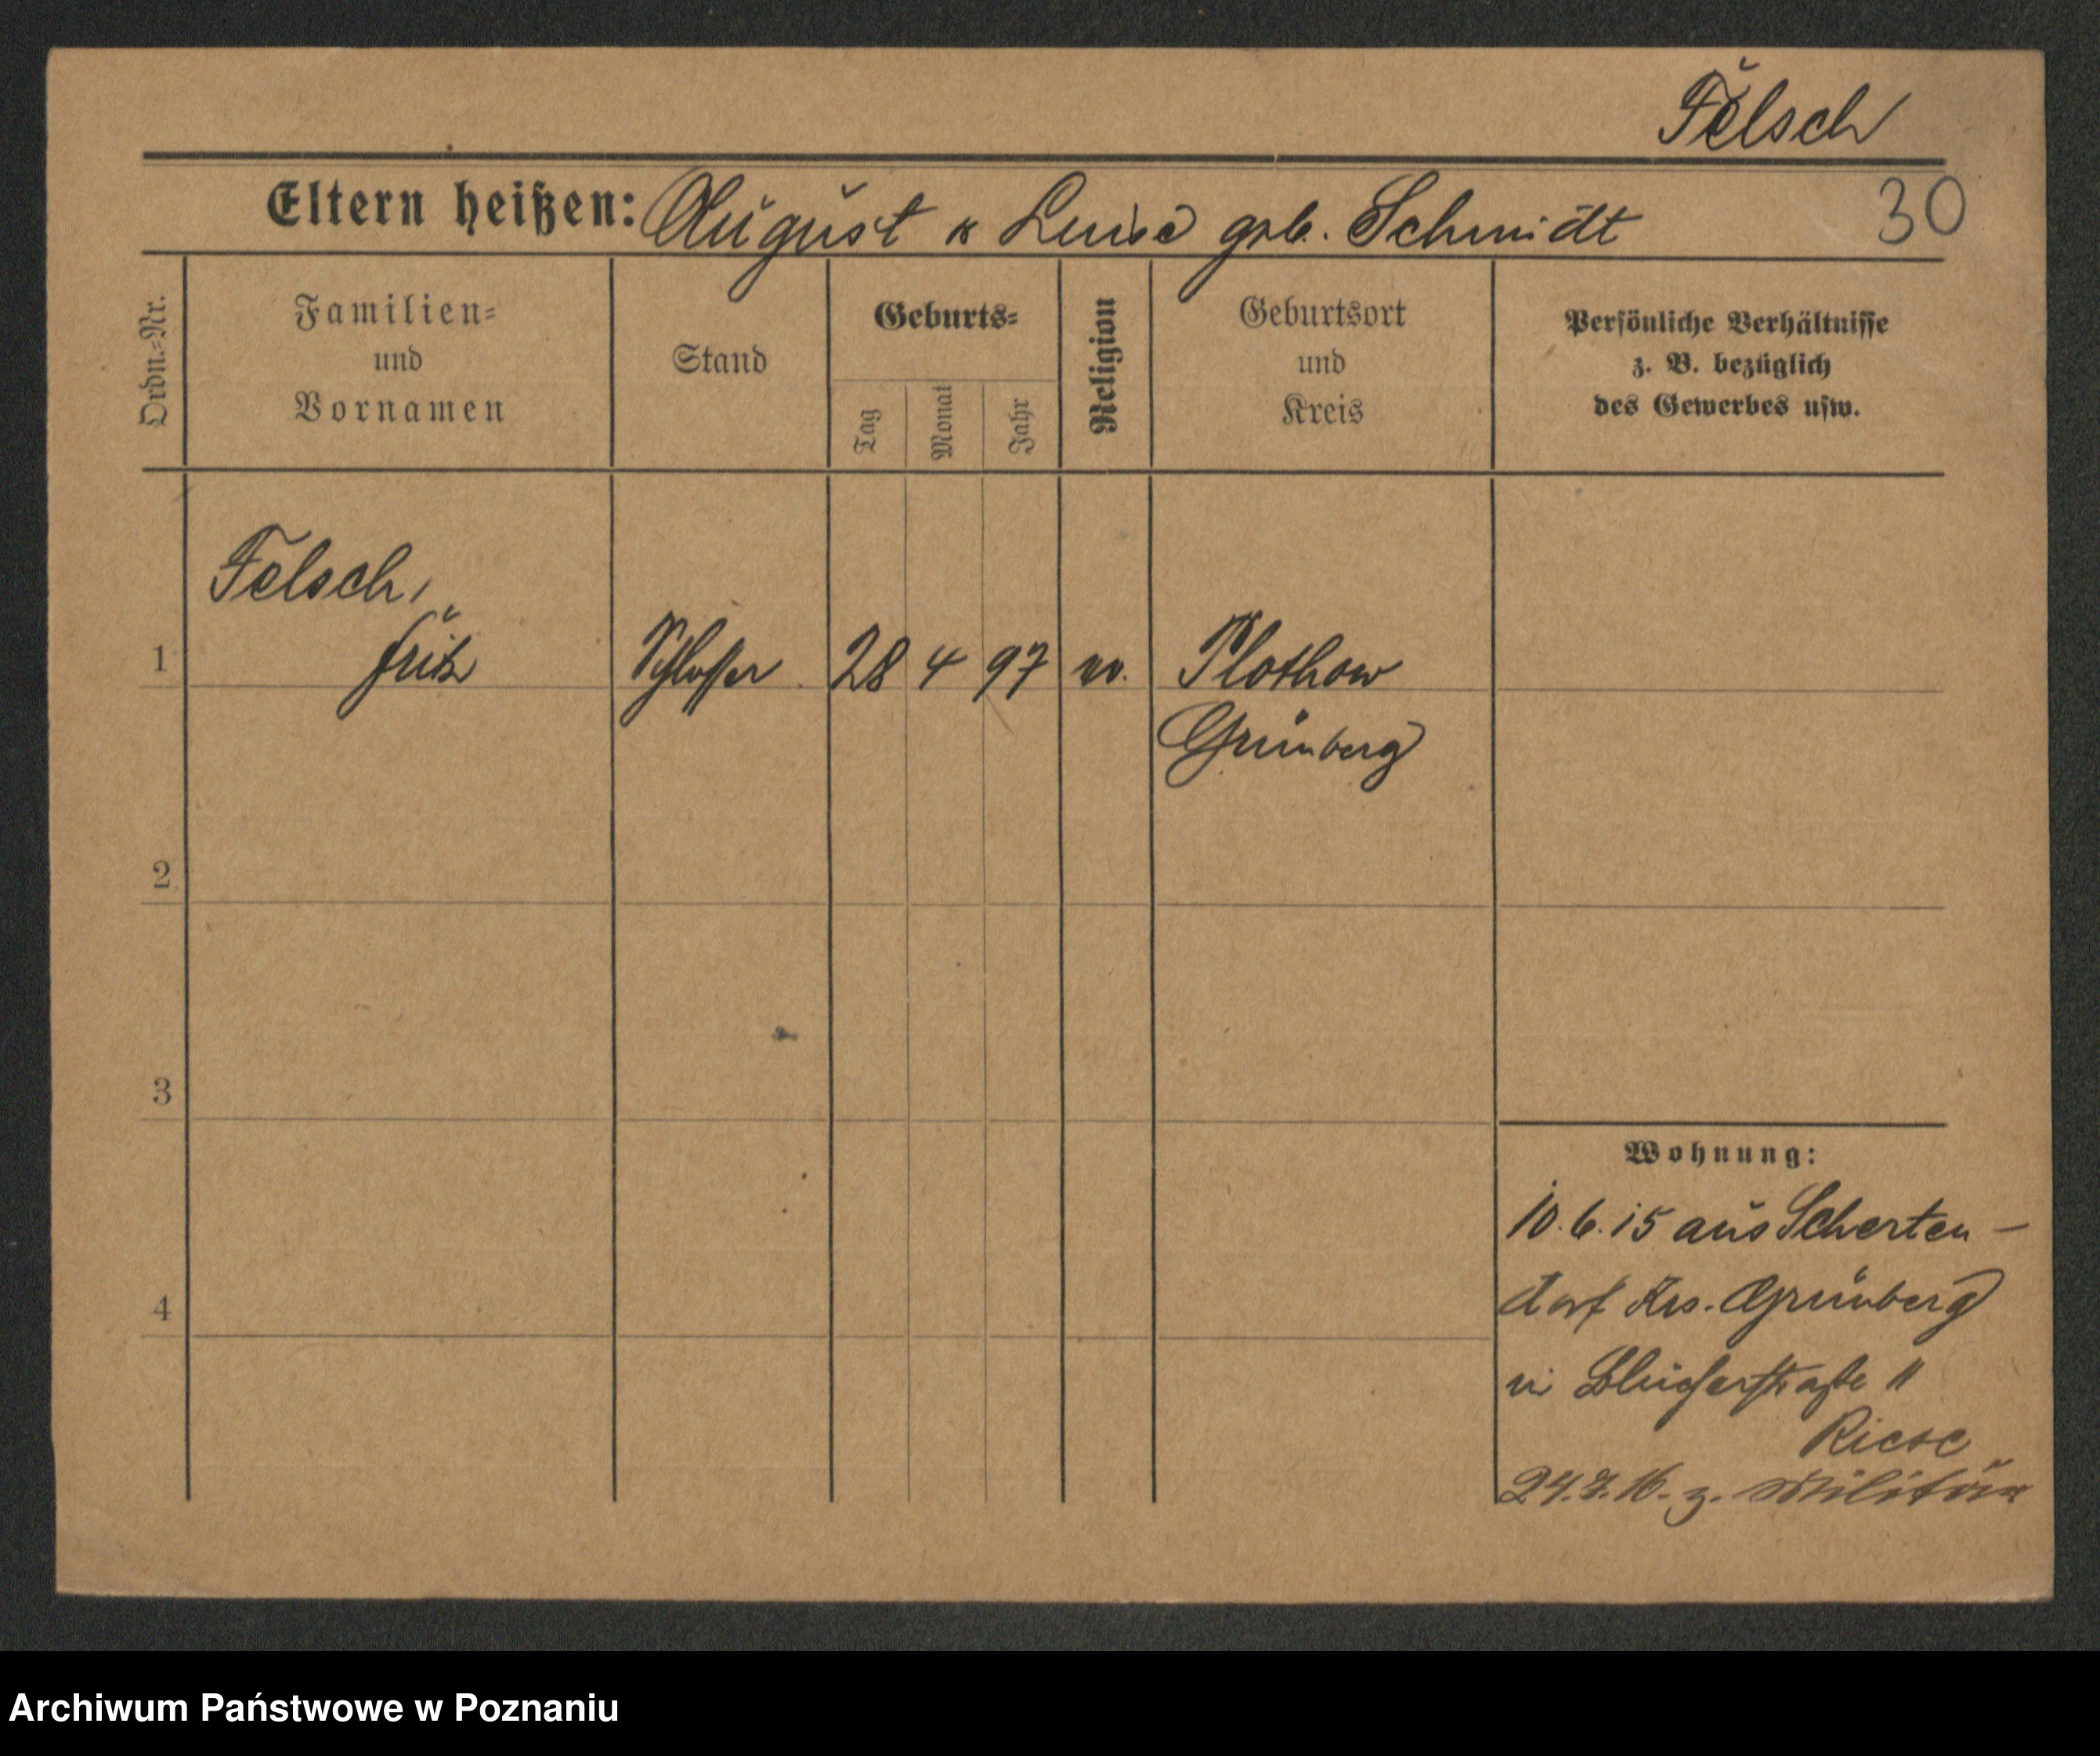 Felsch
Eltern heißen: August u Luise geb. Schmidt 30
Ordn.-Nr.
Familien-
und
Vornamen
Stand
Geburts-
Tag
Monat
Jahr
Religion
Geburtsort
und
Kreis
Persönliche Verhältnisse
z. B. bezüglich
des Gewerbes usw.
Felsch,
1 Fritz Schlosser 28 4 97 ev. Plothow
Grünberg
2
3
4
Wohnung:
10.6.15 aus Scherten-
dorf Krs. Grünberg
in Blücherstraße 11
Riese
24.7.16. z. Militär
Archiwum Państwowe w Poznaniu